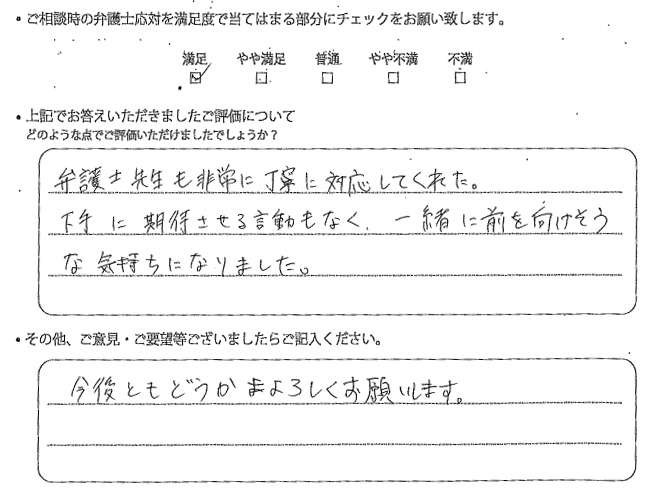 ・ご相談時の弁護士応対を満足度で当てはまる部分にチェックをお願い致します。
満足 やや満足 普通 やや不満 不満
☑ □ □ □ □
・上記でお答えいただきましたご評価について
どのような点でご評価いただけましたでしょうか？
弁護士先生も非常に丁寧に対応してくれた。
下手に期待させる言動もなく、一緒に前を向けそう
な気持ちになりました。
・その他、ご意見・ご要望等ございましたらご記入ください。
今後ともどうかまよろしくお願いします。